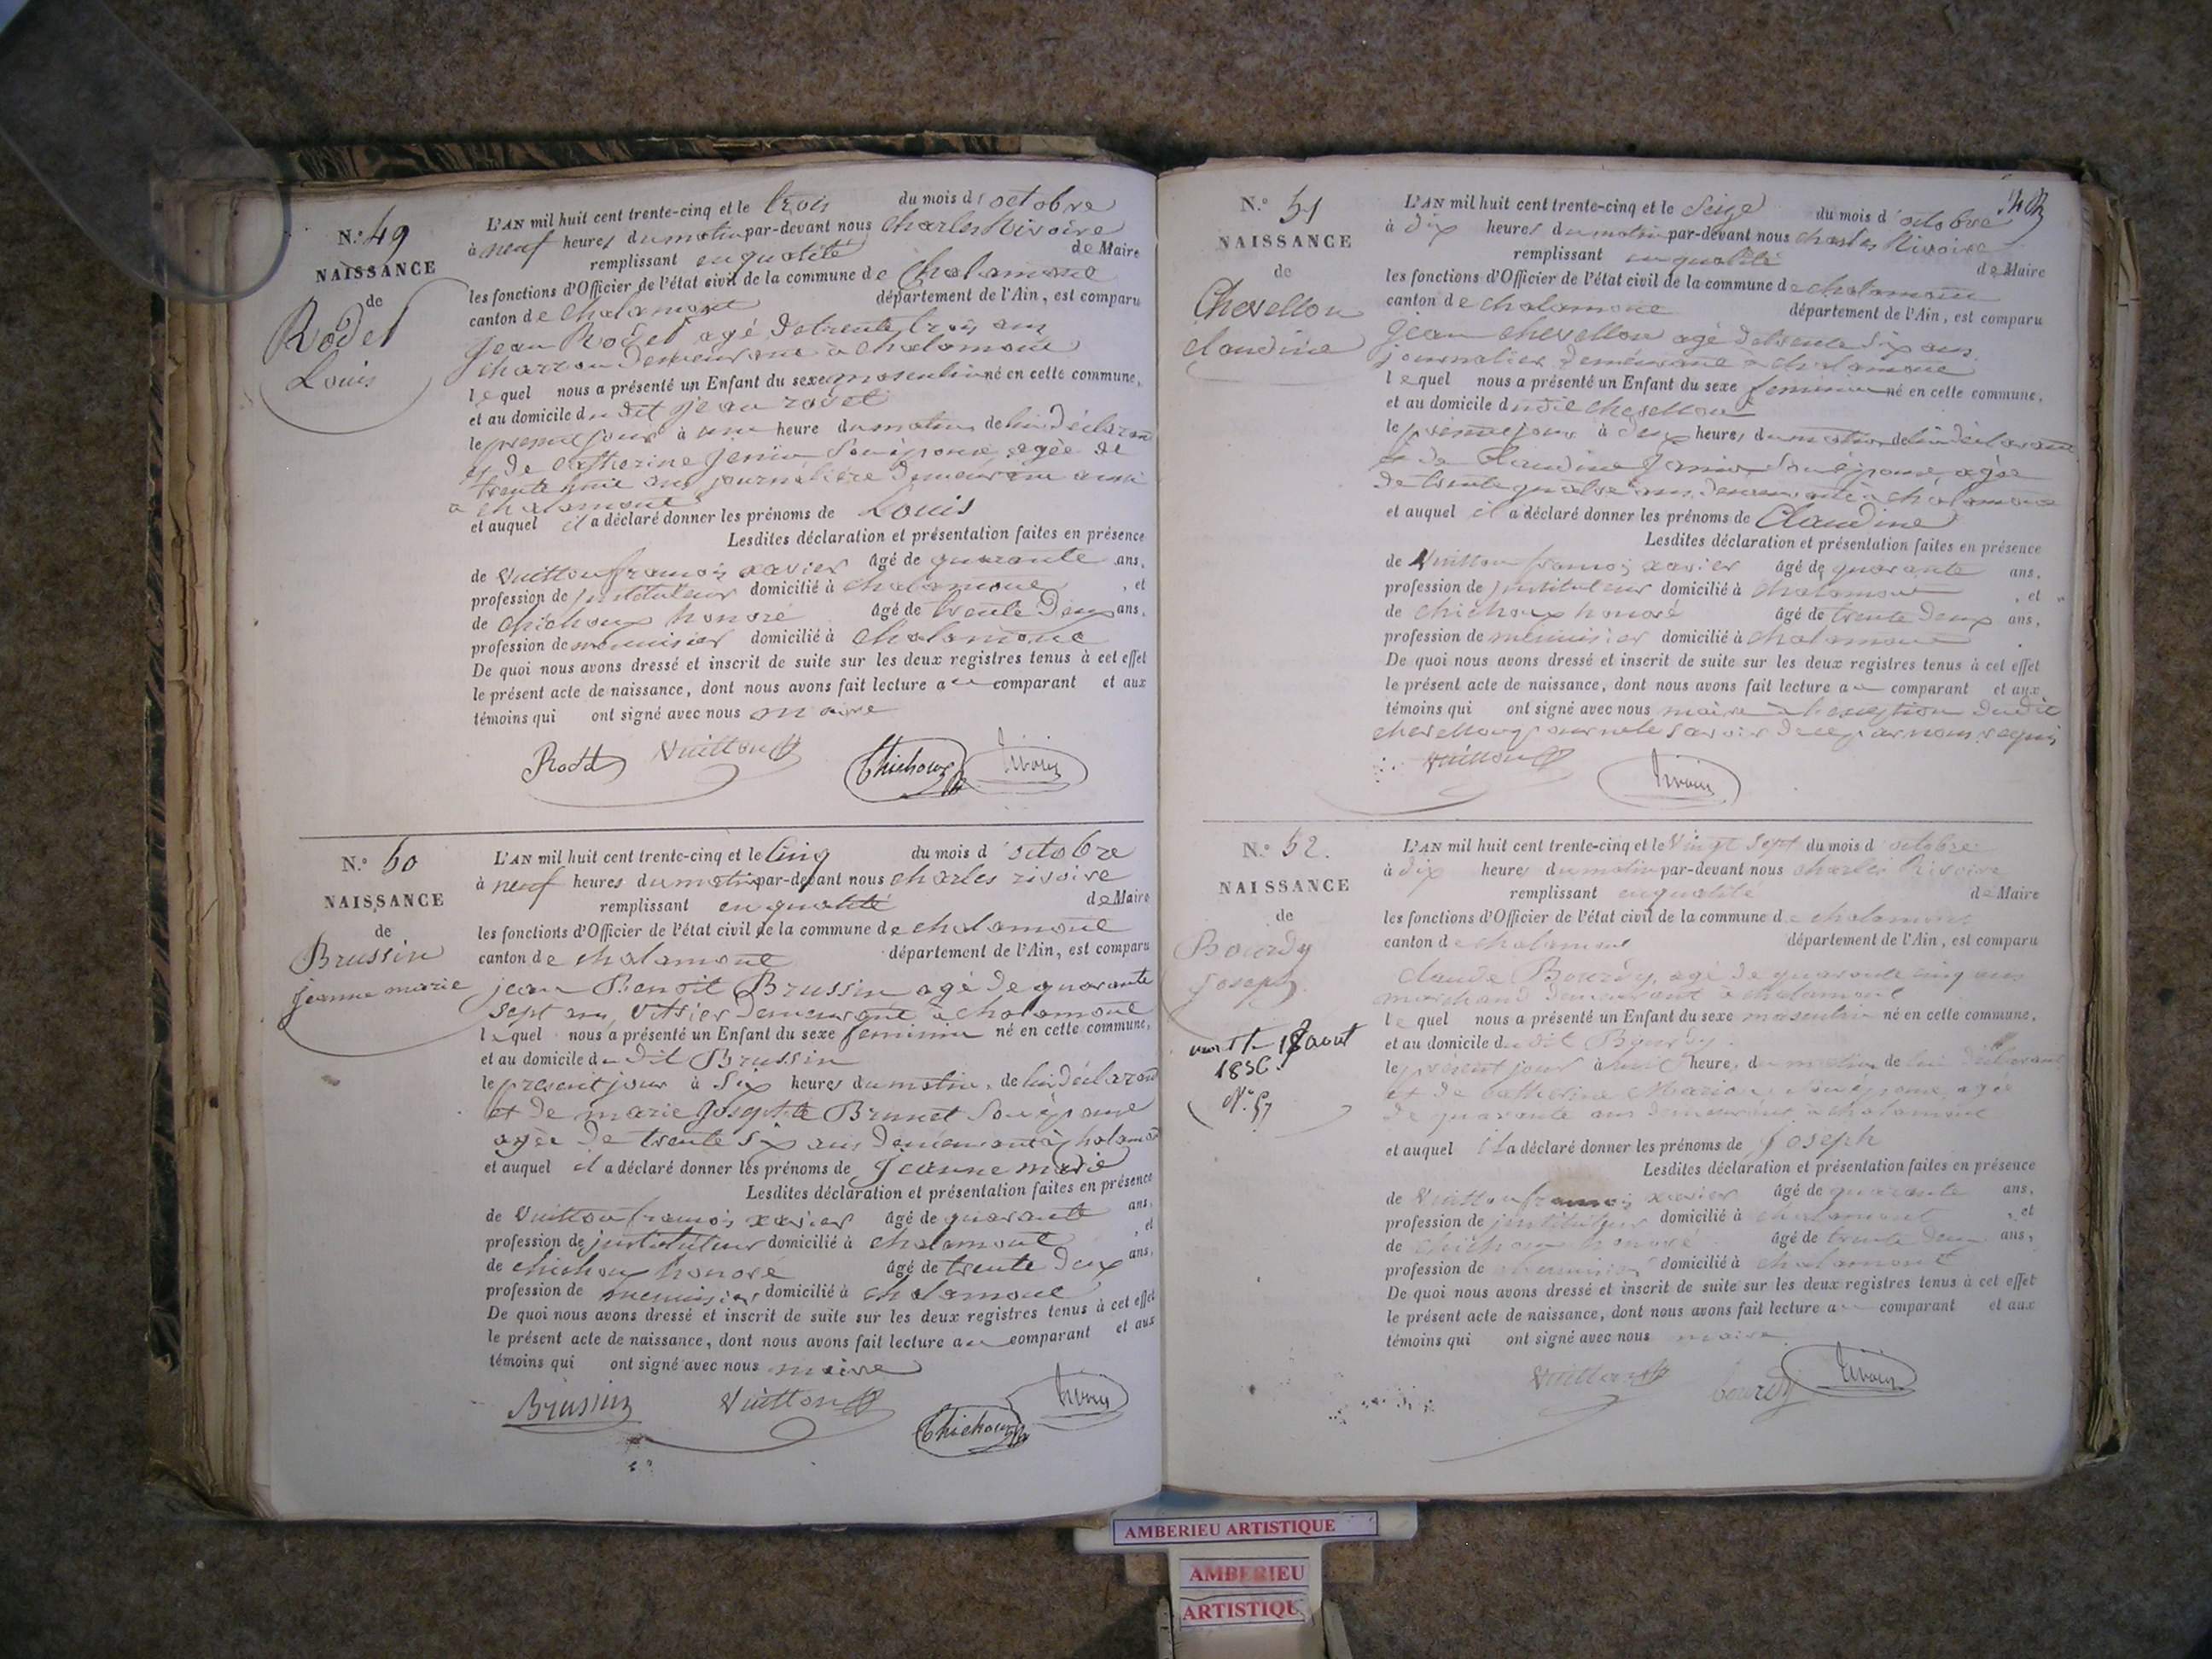 N.° 49
NAISSANCE
de
Rodet
Louis
L'AN mil huit cent trente-cinq et le trois du mois d'octobre
à neuf heures du matin par-devant nous Charles Rivoire
remplissant en qualité de Maire
les fonctions d'Officier de l'état civil de la commune de Chalamont
canton de Chalamont département de l'Ain, est comparu
Jean Rodet agé de trente trois ans
charron demeurant à chalamont
lequel nous a présenté un Enfant du sexe masculin né en cette commune,
et au domicile du dit jean rodet
le present jour à une heure du matin de lui déclarant
et de Catherine Janin son épouse agée de
trente ans journalière demeurant aussi
a chalamont
et auquel il a déclaré donner les prénoms de Louis
Lesdites déclaration et présentation faites en présence
de Vuitton françois xavier âgé de quarante ans,
profession de instituteur domicilié à chalamont, et
de chichoux honoré âgé de trente deux ans,
profession de menuisier domicilié à chalamont
De quoi nous avons dressé et inscrit de suite sur les deux registres tenus à cet effet
le présent acte de naissance, dont nous avons fait lecture au comparant et aux
témoins qui ont signé avec nous maire
Rodet Vuitton Chichoux Rivoire
N.° 50
NAISSANCE
de
Brussin
jeanne marie
L'AN mil huit cent trente-cinq et le cinq du mois d'octobre
à neuf heures du matin par-devant nous charles rivoire
remplissant en qualité de Maire
les fonctions d'Officier de l'état civil de la commune de chalamont
canton de chalamont département de l'Ain, est comparu
jean Benoit Brussin agé de quarante
sept ans, demeurant à chalamont
lequel nous a présenté un Enfant du sexe feminin né en cette commune,
et au domicile du dit Brussin
le present jour à six heures du matin, de lui déclarant
et de marie Josephte Brunet son épouse
agée de trente six ans demeurant à chalamont
et auquel il a déclaré donner les prénoms de Jeanne marie
Lesdites déclaration et présentation faites en présence
de Vuitton françois xavier âgé de quarante ans,
profession de instituteur domicilié à chalamont, et
de chichoux honoré âgé de trente deux ans,
profession de menuisier domicilié à chalamont
De quoi nous avons dressé et inscrit de suite sur les deux registres tenus à cet effet
le présent acte de naissance, dont nous avons fait lecture au comparant et aux
témoins qui ont signé avec nous maire
Brussin Vuitton Chichoux Rivoire
N.° 51
NAISSANCE
de
Chevellon
claudine
L'AN mil huit cent trente-cinq et le seize du mois d'octobre
à dix heures du matin par-devant nous charles Rivoire
remplissant en qualité de Maire
les fonctions d'Officier de l'état civil de la commune de chalamont
canton de chalamont département de l'Ain, est comparu
jean chevellon agé de trente six ans
journalier demeurant à chalamont
lequel nous a présenté un Enfant du sexe feminin né en cette commune,
et au domicile dudit chevellon
le present jour à deux heures du matin de lui déclarant
et de Claudine Janin son épouse, agée
de trente quatre ans demeurante à chalamont
et auquel il a déclaré donner les prénoms de Claudine
Lesdites déclaration et présentation faites en présence
de Vuitton françois xavier âgé de quarante ans,
profession de instituteur domicilié à chalamont, et
de chichoux honoré âgé de trente deux ans,
profession de menuisier domicilié à chalamont
De quoi nous avons dressé et inscrit de suite sur les deux registres tenus à cet effet
le présent acte de naissance, dont nous avons fait lecture au comparant et aux
témoins qui ont signé avec nous maire à l'exception dudit
chevellon pour ne le savoir de ce par nous requis
Vuitton Rivoire
N.° 52.
NAISSANCE
de
Bourdy
joseph
mort le 18 aout
1836.
N° 57
L'AN mil huit cent trente-cinq et le vingt sept du mois d'octobre
à dix heures du matin par-devant nous charles Rivoire
remplissant en qualité de Maire
les fonctions d'Officier de l'état civil de la commune de chalamont
canton de chalamont département de l'Ain, est comparu
claude Bourdy, agé de quarante cinq ans
marchand demeurant à chalamont
lequel nous a présenté un Enfant du sexe masculin né en cette commune,
et au domicile du dit Bourdy
le présent jour à huit heures du matin de lui déclarant
et de Catherine son épouse, agée
de quarante ans demeurant à chalamont
et auquel il a déclaré donner les prénoms de Joseph
Lesdites déclaration et présentation faites en présence
de Vuitton françois xavier âgé de quarante ans,
profession de instituteur domicilié à chalamont, et
de chichoux honoré âgé de trente deux ans,
profession de menuisier domicilié à chalamont
De quoi nous avons dressé et inscrit de suite sur les deux registres tenus à cet effet
le présent acte de naissance, dont nous avons fait lecture au comparant et aux
témoins qui ont signé avec nous maire
Vuitton bourdy Rivoire
AMBERIEU ARTISTIQUE
AMBERIEU
ARTISTIQUE